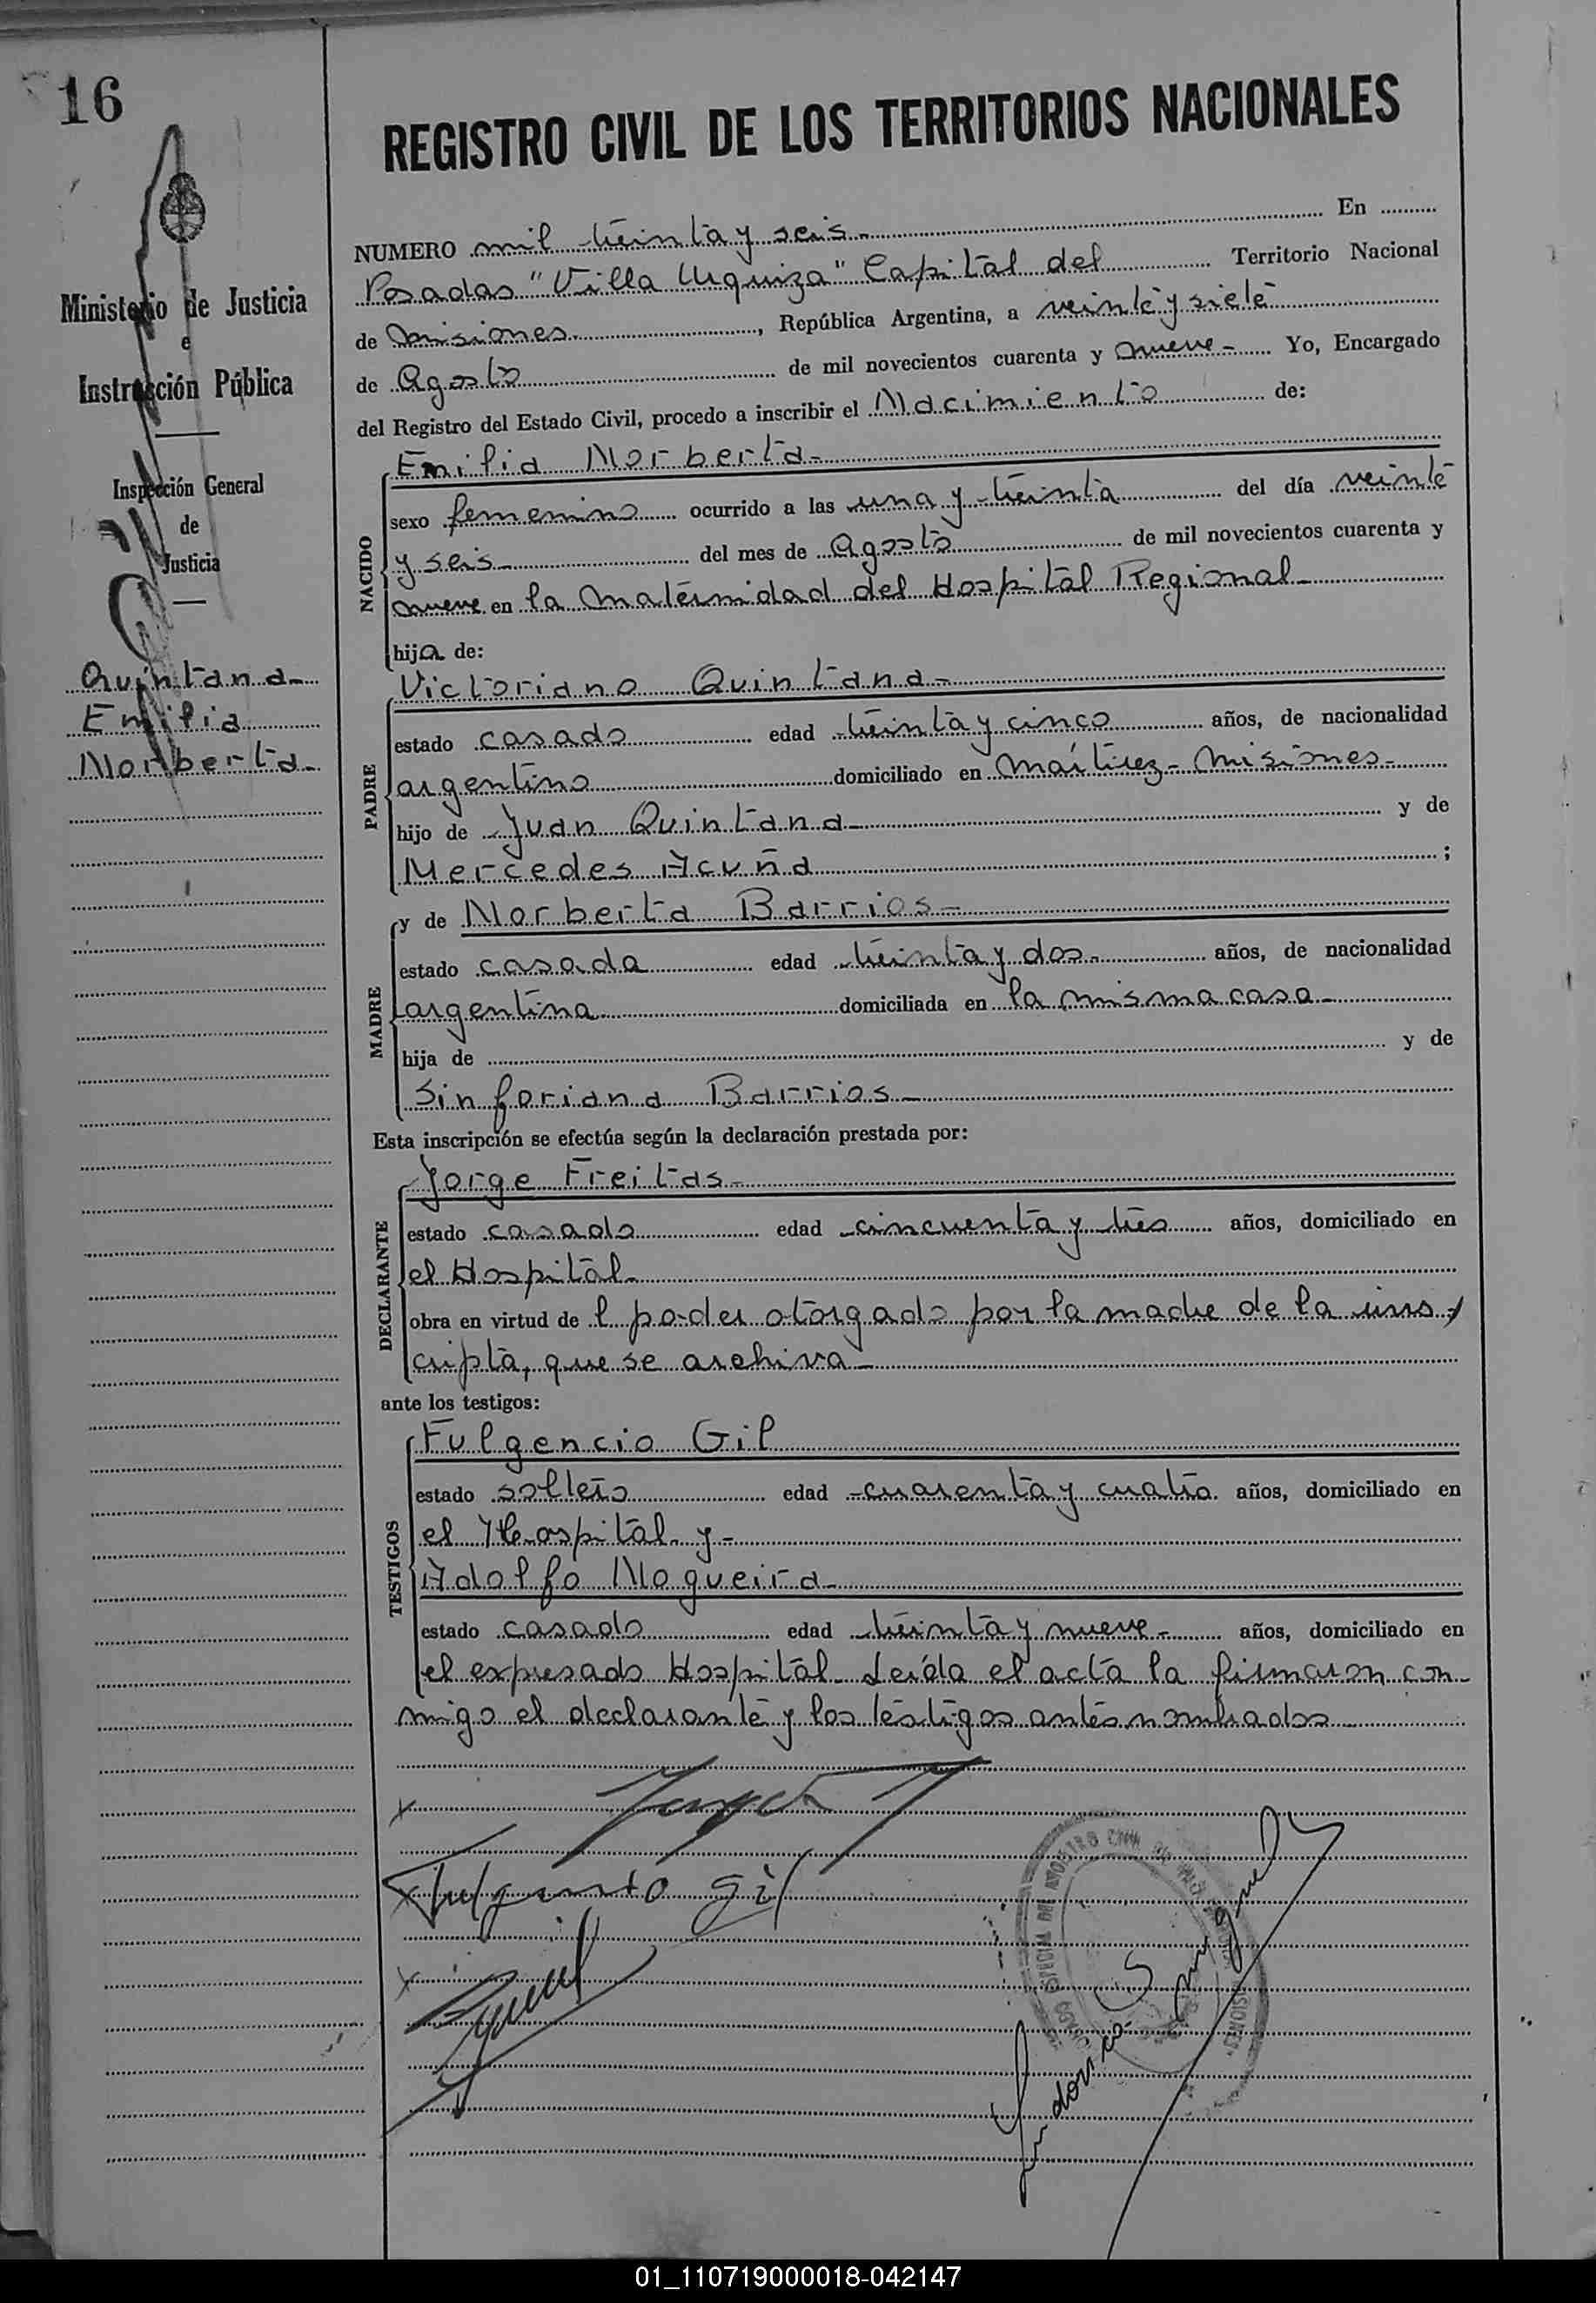 16
REGISTRO CIVIL DE LOS TERRITORIOS NACIONALES
Ministerio de Justicia
e
Instrucción Pública
Inspección General
de
Justicia
Quintana
Emilia
Norberta
NUMERO mil treinta y seis En
Posadas "Villa Urquiza" Capital del Territorio Nacional
de Misiones, República Argentina, a veinte y siete
de Agosto de mil novecientos cuarenta y nueve Yo, Encargado
del Registro del Estado Civil, procedo a inscribir el Nacimiento de:
NACIDO
Emilia Norberta
sexo femenino ocurrido a las una y treinta del día veinte
y seis del mes de Agosto de mil novecientos cuarenta y
nueve en la Maternidad del Hospital Regional
hija de:
PADRE
Victoriano Quintana
estado casado edad treinta y cinco años, de nacionalidad
argentino domiciliado en Mártirez - Misiones
hijo de Juan Quintana y de
Mercedes Acuña ;
MADRE
y de Norberta Barrios
estado casada edad treinta y dos años, de nacionalidad
argentina domiciliada en la misma casa
hija de y de
Sinforiana Barrios
Esta inscripción se efectúa según la declaración prestada por:
DECLARANTE
Jorge Freitas
estado casado edad cincuenta y tres años, domiciliado en
el Hospital
obra en virtud de l poder otorgado por la madre de la ins
cripta, que se archiva
ante los testigos:
TESTIGOS
Fulgencio Gil
estado soltero edad cuarenta y cuatro años, domiciliado en
el Hospital y
Adolfo Nogueira
estado casado edad treinta y nueve años, domiciliado en
el expresado Hospital. Leída el acta la firmaron con-
migo el declarante y los testigos antes nombrados
Fulgencio Gil
01_110719000018-042147